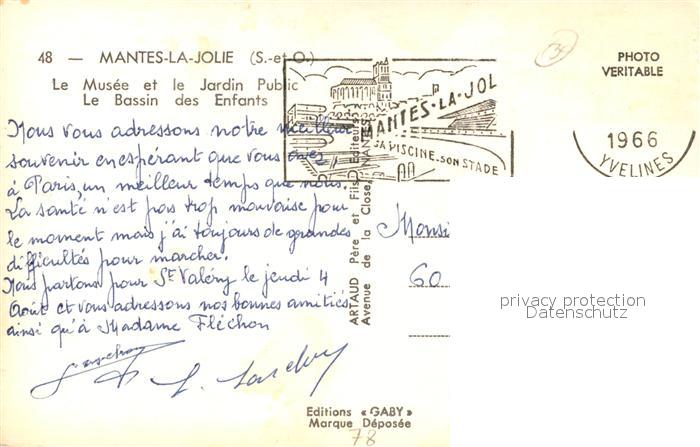 48 — MANTES-LA-JOLIE (S.-et O.)
Le Musée et le Jardin Public
Le Bassin des Enfants
PHOTO
VERITABLE
MANTES-LA-JOL
SA PISCINE. SON STADE
1966
YVELINES
Nous vous adressons notre meilleur
souvenir en espérant que vous ayez
à Paris, un meilleur temps que nous.
La santé n'est pas trop mauvaise pour
le moment mais j'ai toujours de grandes
difficultés pour marcher.
Nous partons pour St Valéry le jeudi 4
Août et vous adressons nos bonnes amitiés
ainsi qu'à Madame Fléchon
ARTAUD Père et Fils Editeurs
Avenue de la Close
Monsi
60
privacy protection
Datenschutz
Editions « GABY »
Marque Déposée
78